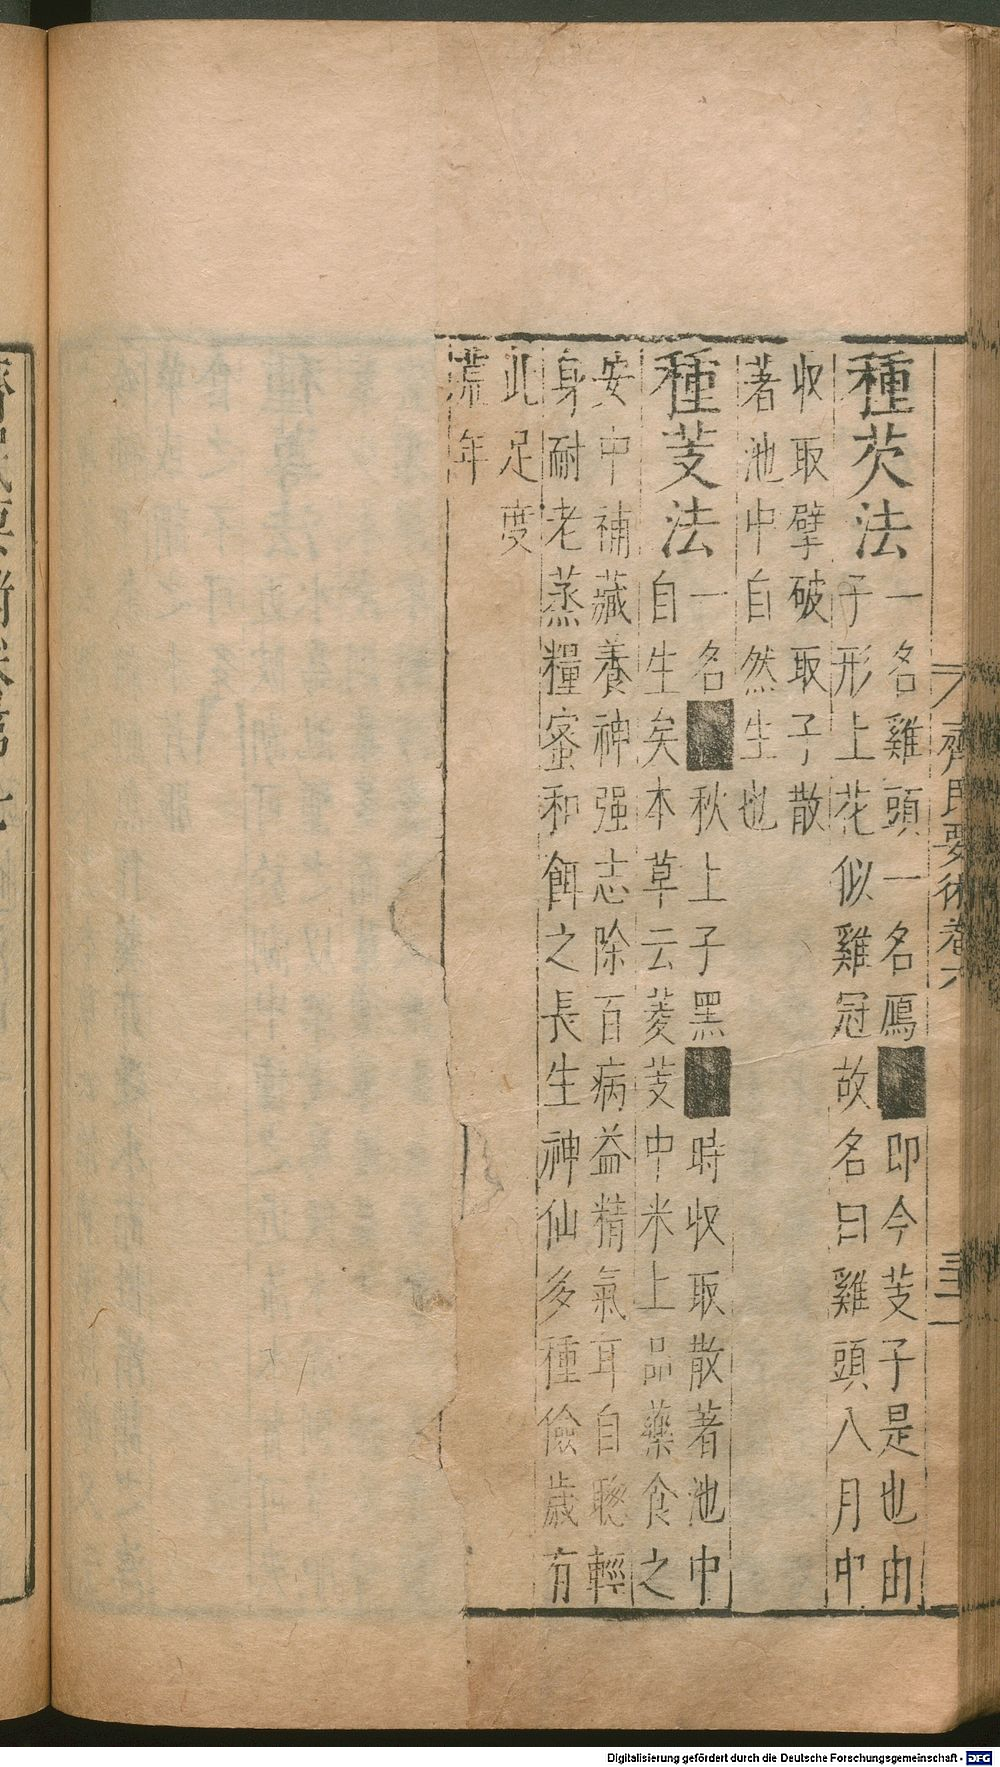 齊民要術卷六
種芡法一名雞頭一名鴈■即今芰子是也由
子形上花似雞冠故名曰雞頭八月中
收取擘破取子散
著池中自然生也
種芰法一名■秋上子黑■時收取散著池中
自生矣本草云菱芰中米上品藥食之
安中補藏養神强志除百病益精氣耳自聰輕
身耐老蒸糧蜜和餌之長生神仙多種儉歲有
此足度
荒年
Digitalisierung gefördert durch die Deutsche Forschungsgemeinschaft - DFG